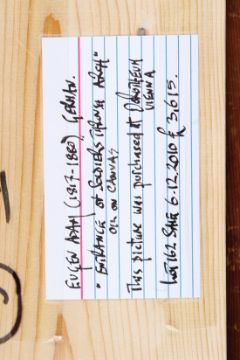 EUGEN ADAM (1817-1880) GERMAN.
"ENTRANCE OF SOLDIERS THROUGH ARCH"
OIL ON CANVAS
This picture was purchased at DOROTHEUM
VIENNA
LOT 162 SALE 6.12.2010 £ 3,615.